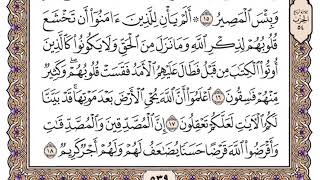 وَبِئْسَ ٱلْمَصِيرُ ١٥ ۞ أَلَمْ يَأْنِ لِلَّذِينَ ءَامَنُوٓا۟ أَن تَخْشَعَ
قُلُوبُهُمْ لِذِكْرِ ٱللَّهِ وَمَا نَزَلَ مِنَ ٱلْحَقِّ وَلَا يَكُونُوا۟ كَٱلَّذِينَ
أُوتُوا۟ ٱلْكِتَٰبَ مِن قَبْلُ فَطَالَ عَلَيْهِمُ ٱلْأَمَدُ فَقَسَتْ قُلُوبُهُمْ ۖ وَكَثِيرٌ
مِّنْهُمْ فَٰسِقُونَ ١٦ ٱعْلَمُوٓا۟ أَنَّ ٱللَّهَ يُحْىِ ٱلْأَرْضَ بَعْدَ مَوْتِهَا ۚ قَدْ بَيَّنَّا
لَكُمُ ٱلْـَٔايَٰتِ لَعَلَّكُمْ تَعْقِلُونَ ١٧ إِنَّ ٱلْمُصَّدِّقِينَ وَٱلْمُصَّدِّقَٰتِ
وَأَقْرَضُوا۟ ٱللَّهَ قَرْضًا حَسَنًا يُضَٰعَفُ لَهُمْ وَلَهُمْ أَجْرٌ كَرِيمٌ ١٨
٥٣٩